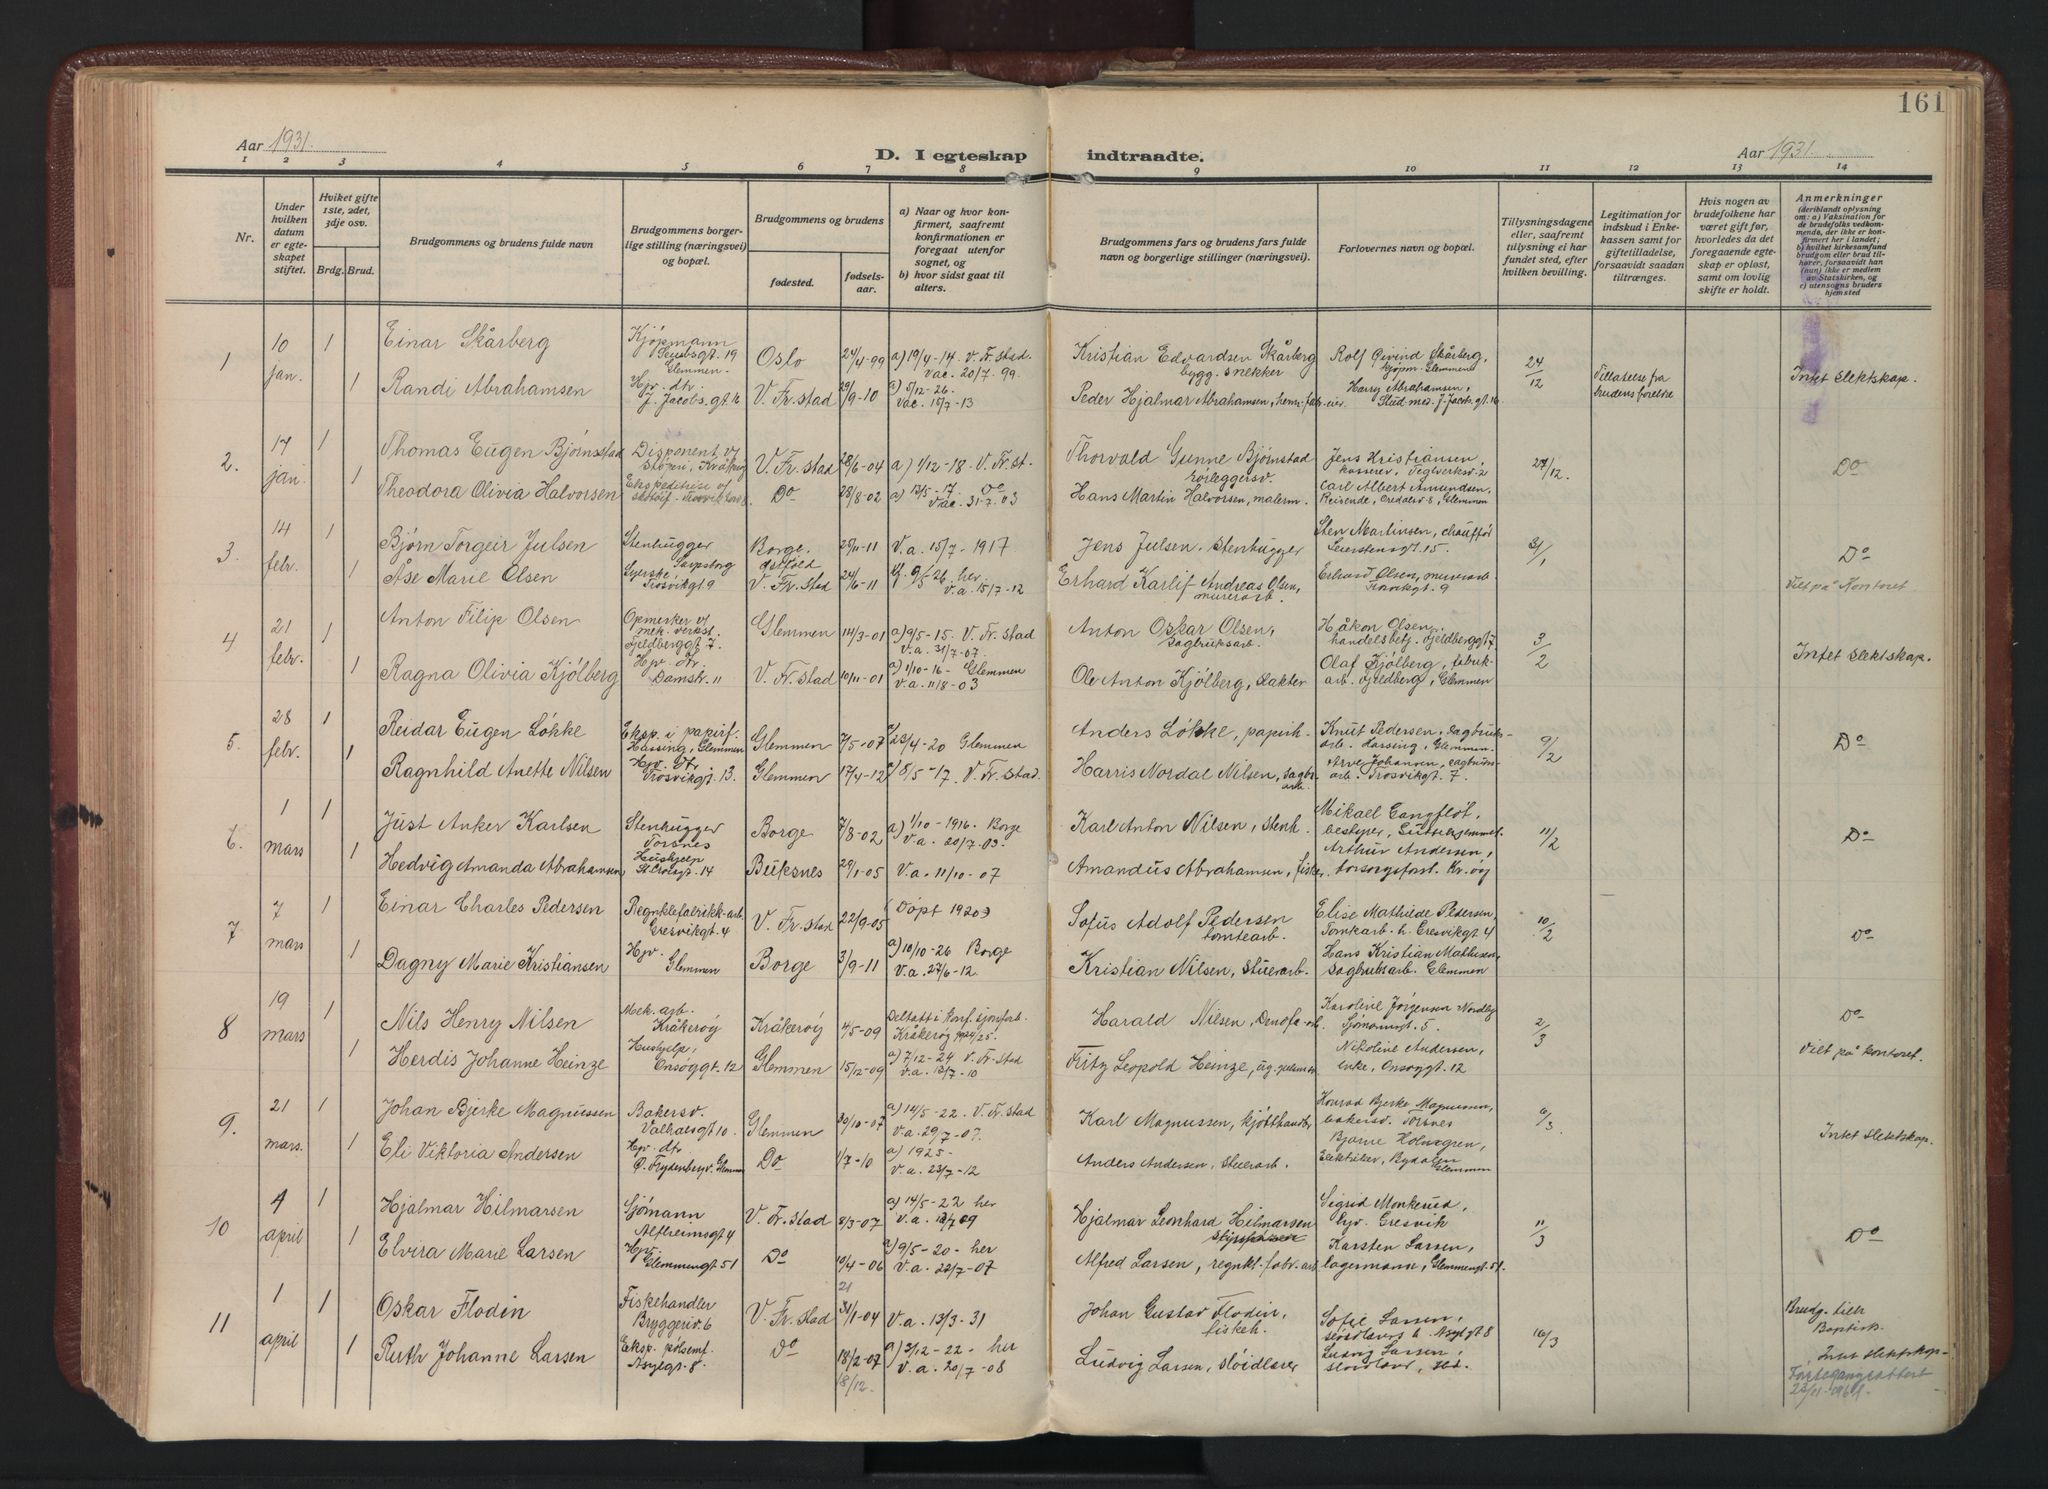 161
Aar 1931.
D. I egteskap indtraadte.
Aar 1931.
1 2 3 4 5 6 7 8 9 10 11 12 13 14
Nr.
Under hvilken datum er egteskapet stiftet.
Hvilket gifte 1ste, 2det, 3dje osv.
Brdg. Brud.
Brudgommens og brudens fulde navn
Brudgommens borgerlige stilling (næringsvei) og bopæl.
Brudgommens og brudens
fødested.
fødselsaar.
a) Naar og hvor konfirmert, saafremt konfirmationen er foregaat utenfor sognet, og
b) hvor sidst gaat til alters.
Brudgommens fars og brudens fars fulde navn og borgerlige stillinger (næringsvei).
Forlovernes navn og bopæl.
Tillysningsdagene eller, saafremt tillysning ei har fundet sted, efter hvilken bevilling.
Legitimation for indskud i Enkekassen samt for giftetilladelse, forsaavidt saadan tiltrænges.
Hvis nogen av brudefolkene har været gift før, hvorledes da det foregaaende egteskap er opløst, samt om lovlig skifte er holdt.
Anmerkninger
(deriblandt oplysning om: a) Vaksination for de brudefolks vedkommende, der ikke er konfirmert her i landet; b) hvilket kirkesamfund brudgom eller brud tilhører, forsaavidt han (hun) ikke er medlem av Statskirken, og c) utensogns bruders hjemsted
1 10 jan. 1 Einar Skårberg Kjøpmann Glemmen Oslo 24/4-99 a) 19/4-14. V. Fr.stad. Vac. 20/7. 99. Kristian Edvardsen Skårberg bygg. snekker Rolf Øivind Skårberg, kjøpm. Glemmen 24/12 Tilladelse fra brudens foreldre Intet slektskap.
1 Randi Abrahamsen Hjv. dtr. J. Jacobs.gt 16 V. Fr.stad 29/9-10 a) 5/12-26. Vac. 15/7-13 Peder Hjalmar Abrahamsen, Harry Abrahamsen, Stud. med. J. Jacobs.gt. 16
2. 17 jan. 1 Thomas Eugen Bjørnstad Disponent v/ V. Fr.stad 28/6-04 a) 1/12-18. V. Fr.st. Thorvald Gunne Bjørnstad rørleggersv. Jens Kristiansen, kasserer, Teglverksv. 2 27/12. Do
1 Theodora Olivia Halvorsen Do 28/8-02 a) 13/5-17. Do Vac. 31-7. 03 Hans Martin Halvorsen, malerm. Carl Albert Amundsen, Reisende, Glemmen
3. 14 febr. 1 Bjørn Torgeir Julsen Stenhugger Sarpsborg Borge. Østfold 25/11-11 V.a. 15/7-1917 Jens Julsen. Stenhugger Sten Martinsen, chauffør 15. 31/1 Do
1 Åse Marie Olsen Syerske Trosvikgt. 9 V. Fr.stad 24/6-11 9/5-26. her V.a. 15/7-12 Erhard Karlif Andreas Olsen, murerarb. Erhard Olsen, murerarb. Trosvikgt. 9 Viet på Kontoret
4 21 febr. 1 Anton Filip Olsen Opmerker v/ mek. verkst. Fjeldberggt. 7 Glemmen 14/3-01 a) 9/5-15. V. Fr.stad V.a. 31/7-07. Anton Oskar Olsen, Sagbruksarb. Håkon Olsen, handelsbetj. Fjeldberggt 7 3/2 Intet slektskap.
1 Ragna Olivia Kjølberg Hjv. Damstr. 11 V. Fr.stad 10/11-01 a) 1/10-16- Glemmen V.a. 11/8-03 Ole Anton Kjølberg, slakter Olaf Kjølberg, fabrikarb. Fjeldberg, Glemmen
5. 28 febr. 1 Reidar Eugen Løkke Eksp. i papirf. Hassing, Glemmen Glemmen 7/5-07 23/4-20 Glemmen Anders Løkke, papirh. Knut Pedersen, sagbruksarb. Hassing, Glemmen. 9/2 Do
1 Ragnhild Anette Nilsen Hjv. dtr Trosvikgt. 13. Glemmen 17/4-12 8/5-17. V. Fr.stad. Harris Nordal Nilsen, sagbr.arb. Arve Johansen, sagbruksarb. Trosvikgt. 7.
6. 1 mars 1 Just Anker Karlsen Stenhugger Torsnes Borge 7/8-02 a) 1/10-1916. Borge V.a. 20/7.03. Karl Anton Nilsen, Stenh. Mikael Gangfløt, bestyrer, 11/2 Do
1 Hedvig Amanda Abrahamsen Hushjelp St. Croixgt. 14 Buksnes 29/1-05 V.a. 11/10-07 Amandus Abrahamsen, fisker Arthur Andersen, forsorgsforst. Kr.øy
7 7 mars 1 Einar Charles Pedersen Gresvikgt. 4 V. Fr.stad 22/9-05 Døpt 1920 Sofus Adolf Pedersen tomtearb. Elise Mathilde Pedersen, Tomtearb. h. Gresvikgt 4 10/2 Do
1 Dagny Marie Kristiansen Hjv. Glemmen Borge 3/9-11 a) 10/10-26 Borge V.a. 27/6-12. Kristian Nilsen, stuerarb. Hans Kristian Mathisen, sagbruksarb. Glemmen
8 19 mars 1 Nils Henry Nilsen Mek. arb. Kråkerøy Kråkerøy 4/5-09 Deltatt i konf. Kråkerøy 1924/25. Harald Nilsen, Denofa-arb. Karoline Jørgensen Nordli Sjømannsgt. 5. 2/3 Do
1 Herdis Johanne Heinze Hushjelp, Onsøygt. 12 Glemmen 15/12-09 a) 7/12-24 V. Fr.stad V.a. 13/7-10 Fritz Leopold Heinze, Nikoline Andersen, enke, Onsøygt. 12 Viet på kontoret.
9. 21 mars. 1 Johan Bjerke Magnussen Bakersv. Valhalsgt 10. Glemmen 30/10-07 a) 14/5-22. V. Fr.stad V.a. 29/7-07. Karl Magnussen, kjøtthandler Konrad Bjerke Magnussen, bakersv. Torsnes 6/3 Intet slektskap.
1 Eli Viktoria Andersen Hjv. dtr. Glemmen Do 1/7-10 a) 1925- V.a. 23/7-12 Anders Andersen, stuerarb. Bjarne Holmgren, Elektriker, Bydalen Glemmen
10 4 april 1 Hjalmar Hilmarsen Sjømann Alfheimsgt 4 V. Fr.stad 8/3-07 a) 14/5-22 her V.a. 13/7 09 Hjalmar Leonhard Hilmarsen Sigrid Monkerud, hjv. Gresvik 11/3 Do
1 Elvira Marie Larsen Hjv. Glemmengt 51 Do 10/4-06 a) 9/5-20- her V.a. 22/7-07 Alfred Larsen, regnkl. fabr. arb Karsten Larsen, lagermann, Glemmengt. 51.
11 1 april 1 Oskar Flodin Fiskehandler Bryggeriv. 6 V. Fr.stad 21 31/1-04 V.a. 13/3-31 Johan Gustav Flodin, fiskeh. Sofie Larsen, sløidlærers h. Asylgt 8 16/3 Brudg. tilh. Baptists.
1 Ruth Johanne Larsen Eksp. pølsemf. Asylgt. 8. do 18/2-07 18/12. a) 3/12-22- her V.a. 20/7-08 Ludvig Larsen, sløidlærer Ludvig Larsen, sløidlærer, sst. Intet slektskap- 23/11-1961.